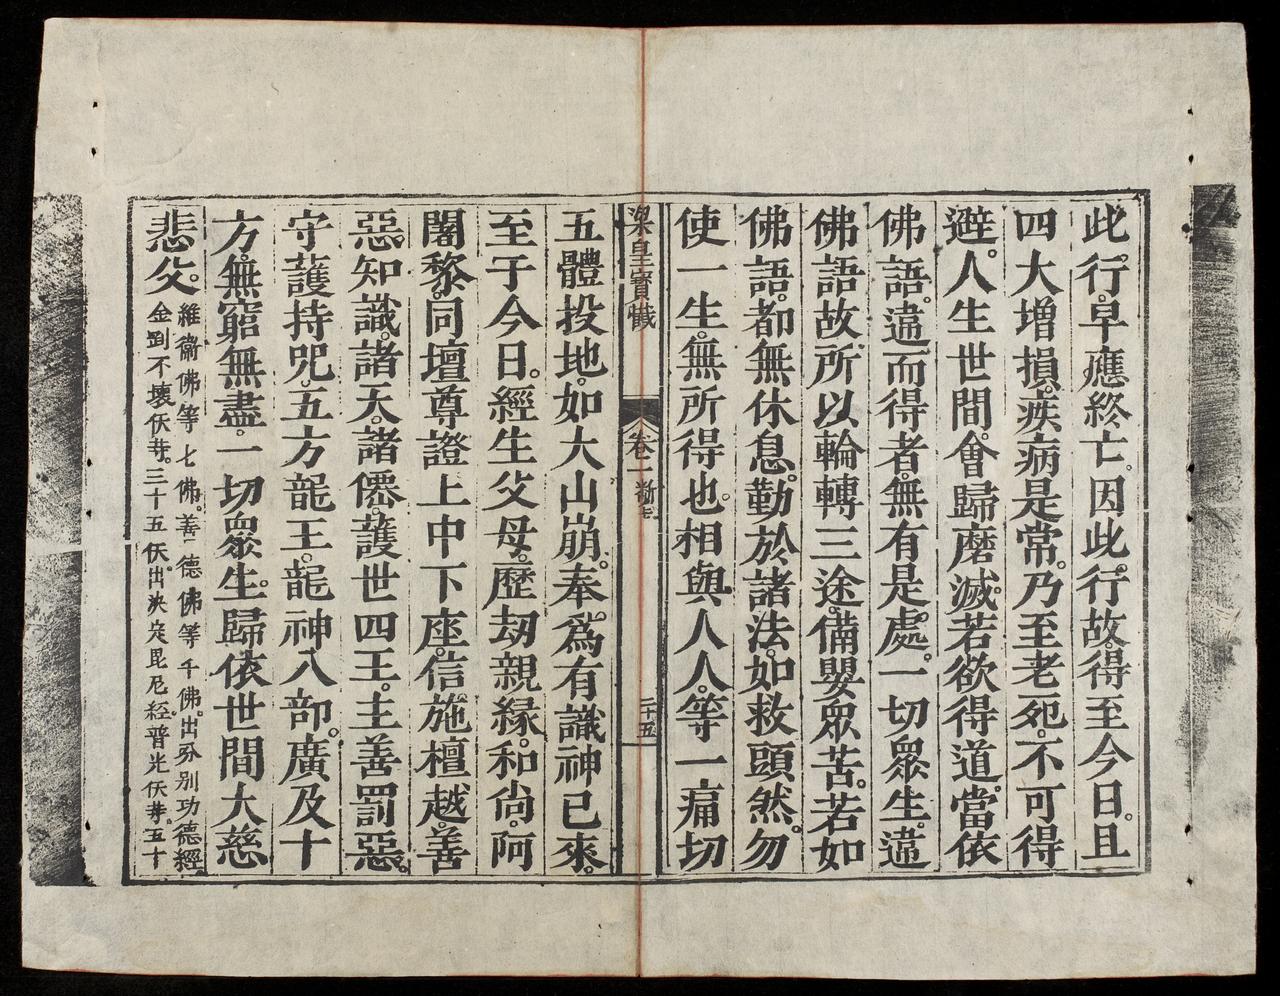 此。行。早應終亡。因此。行故。得至今日。且
四大增損。疾病是常。乃至老死。不可得
避。人生世間。會歸磨滅。若欲得道。當依
佛語。違而得者。無有是處。一切衆生。違
佛語故。所以輪轉三途。備嬰衆苦。若如
佛語。都無休息。勤於諸法。如救頭然。勿
使一生。無所得也。相與人人。等一痛切
梁皇寶懺 卷一 二十五
五體投地。如大山崩。奉爲有識神已來。
至于今日。經生父母。歷劫親緣。和尚。阿
闍黎。同壇尊證。上中下座。信施檀越。善
惡知識。諸天。諸僊。護世四王。主善罰惡。
守護持咒。五方龍王。龍神八部。廣及十
方。無窮無盡。一切衆生。歸依世間大慈
悲父。
維衞佛等七佛。善德佛等千佛。出分別功德經
金剛不壞佛等。三十五佛。出決定毘尼經。普光佛等。五十